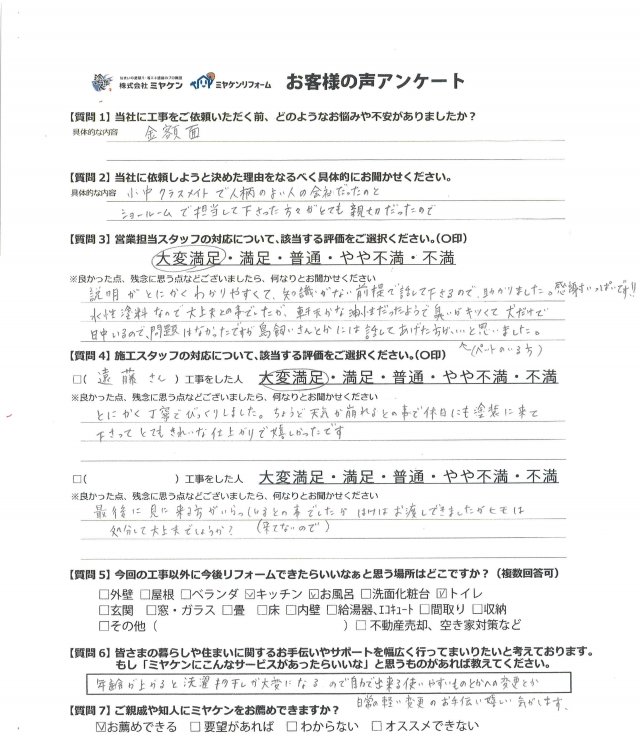 住まいの塗替え・省エネ塗装のプロ集団
株式会社 ミヤケン ミヤケンリフォーム お客様の声アンケート
【質問 1】当社に工事をご依頼いただく前、どのようなお悩みや不安がありましたか?
具体的な内容 金額面
【質問 2】当社に依頼しようと決めた理由をなるべく具体的にお聞かせください。
具体的な内容 小中クラスメイトで人柄のよい人の会社だったのと
ショールームで担当して下さった方々がとても親切だったので
【質問 3】営業担当スタッフの対応について、該当する評価をご選択ください。(〇印)
大変満足・満足・普通・やや不満・不満
※良かった点、残念に思う点などございましたら、何なりとお聞かせください
説明がとにかくわかりやすくて、知識がない前提で話して下さるので、助かりました。感謝いっぱいです!!
水性塗料なので大丈夫との事でしたが、軒天がな油性だったようで臭いがキツくて犬だけで
日中いるので、問題はなかったですが鳥飼いさんとかには話してあげた方がいいと思いました。
(ペットのいる方)
【質問 4】施工スタッフの対応について、該当する評価をご選択ください。(〇印)
□( 遠藤さん )工事をした人 大変満足・満足・普通・やや不満・不満
※良かった点、残念に思う点などございましたら、何なりとお聞かせください
とにかく丁寧でびっくりしました。ちょうど天気が崩れるとの事で休日にも塗装に来て
下さってとてもきれいな仕上がりで嬉しかったです
□( )工事をした人 大変満足・満足・普通・やや不満・不満
※良かった点、残念に思う点などございましたら、何なりとお聞かせください
最後に見に来る方がいらっしゃるとの事でしたがはけはお渡しできましたがヒモは
処分して大丈夫でしょうか? (来てないので)
【質問 5】今回の工事以外に今後リフォームできたらいいなぁと思う場所はどこですか?(複数回答可)
□外壁 □屋根 □ベランダ ☑キッチン ☑お風呂 □洗面化粧台 ☑トイレ
□玄関 □窓・ガラス □畳 □床 □内壁 □給湯器、エコキュート □間取り □収納
□その他( ) □不動産売却、空き家対策など
【質問 6】皆さまの暮らしや住まいに関するお手伝いやサポートを幅広く行ってまいりたいと考えております。
もし「ミヤケンにこんなサービスがあったらいいな」と思うものがあれば教えてください。
年齢が上がると洗濯物干しが大変になるので自力で出来る使いやすいものとかへの変更とか
日常の軽い変更のお手伝い嬉しい気がします。
【質問 7】ご親戚や知人にミヤケンをお薦めできますか?
☑お薦めできる □要望があれば □わからない □オススメできない